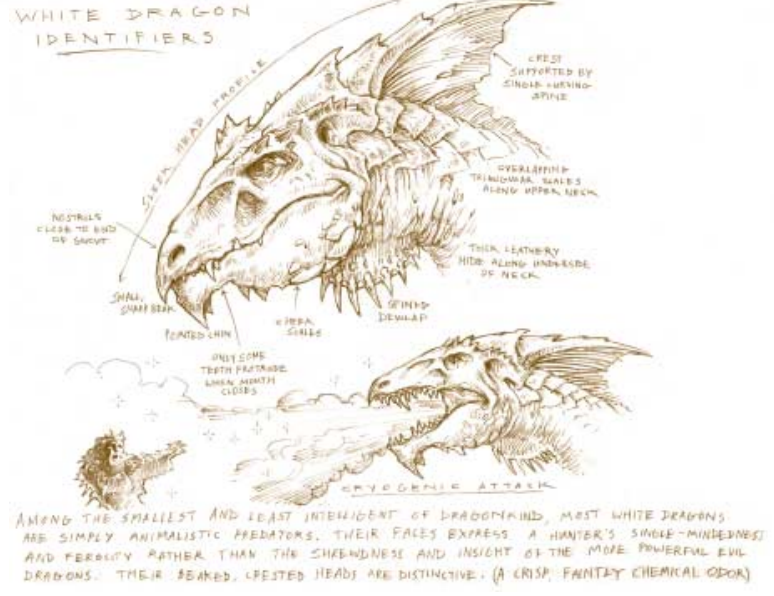 WHITE DRAGON
IDENTIFIERS
SLEEK HEAD PROFILE
CREST
SUPPORTED BY
SINGLE CURVING
SPINE
OVERLAPPING
TRIANGULAR SCALES
ALONG UPPER NECK
NOSTRILS
CLOSE TO END
OF SNOUT
THICK LEATHERY
HIDE ALONG UNDERSIDE
OF NECK
SMALL,
SHARP BEAK
POINTED CHIN
CHEEK
SCALES
SPINED
DEWLAP
ONLY SOME
TEETH PROTRUDE
WHEN MOUTH
CLOSES
CRYOGENIC ATTACK
AMONG THE SMALLEST AND LEAST INTELLIGENT OF DRAGONKIND, MOST WHITE DRAGONS
ARE SIMPLY ANIMALISTIC PREDATORS. THEIR FACES EXPRESS A HUNTER'S SINGLE-MINDEDNESS
AND FEROCITY RATHER THAN THE SHREWDNESS AND INSIGHT OF THE MORE POWERFUL EVIL
DRAGONS. THEIR BEAKED, CRESTED HEADS ARE DISTINCTIVE. (A CRISP, FAINTLY CHEMICAL ODOR)